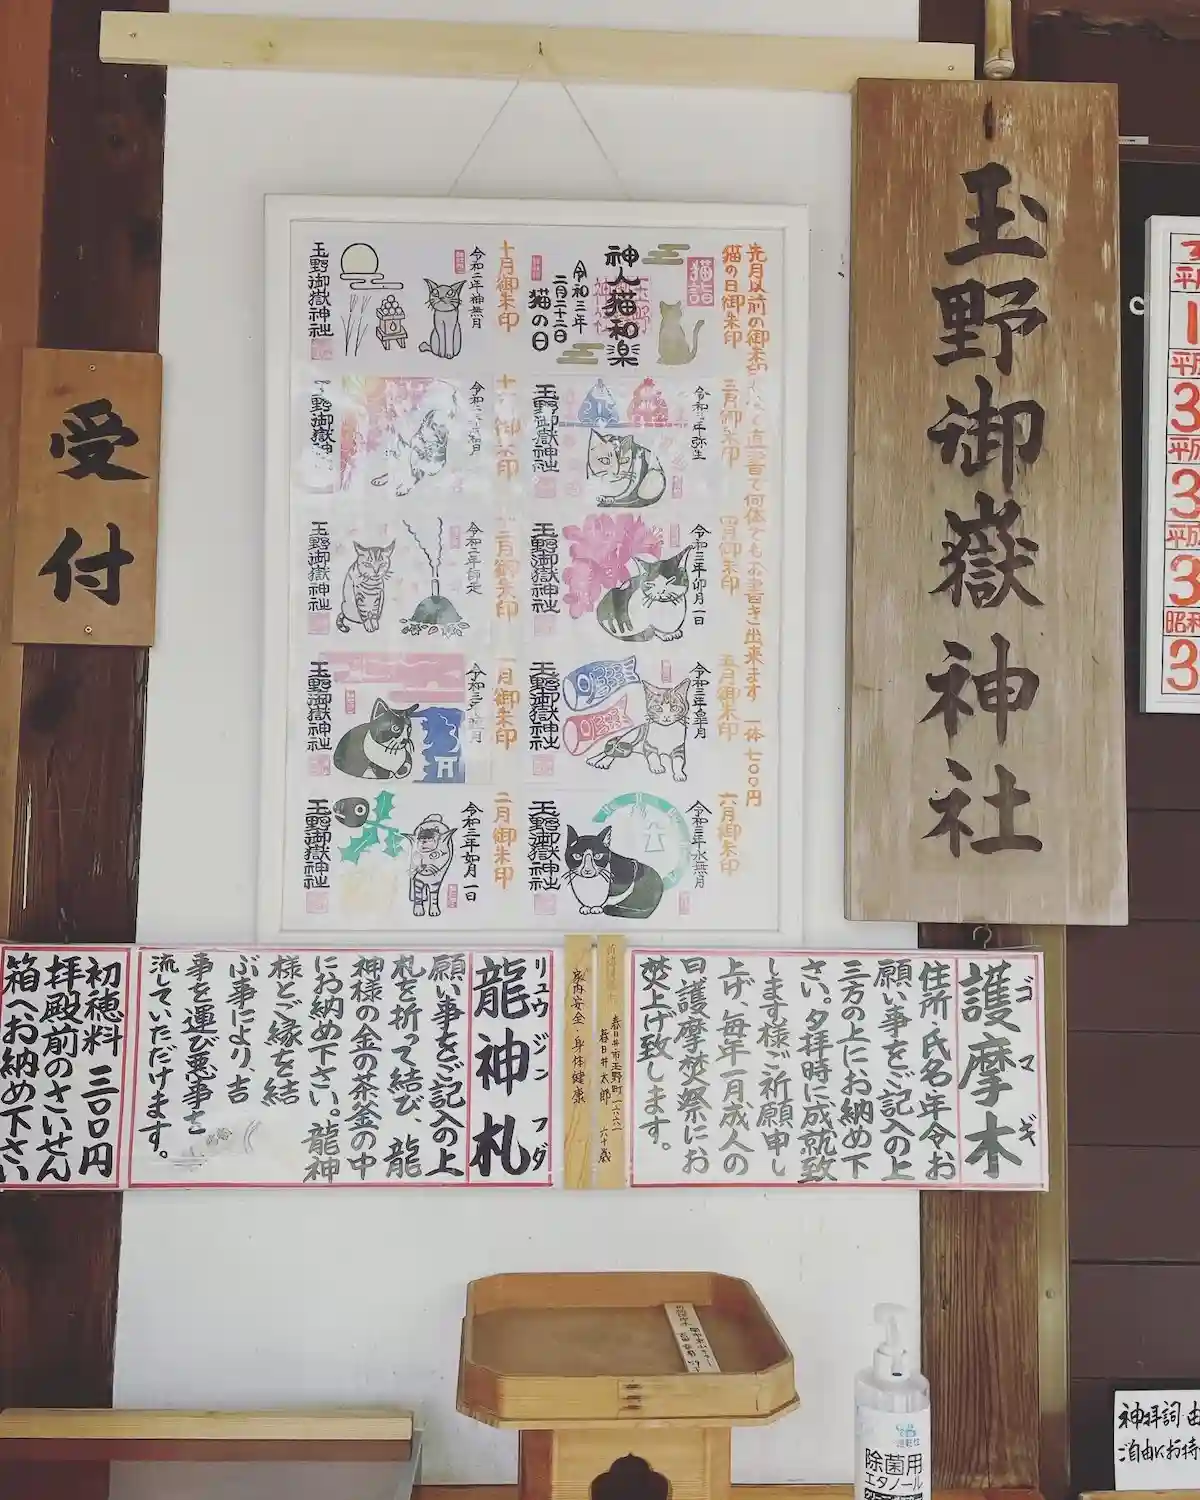 玉野御嶽神社
受付
先月以前の御朱印
直書で何体でもお書き出来ます 一体七〇〇円
猫の日御朱印
猫詣
神人猫和楽
令和三年
二月二十二日
猫の日
三月御朱印
令和三年弥生
玉野御嶽神社
四月御朱印
令和三年卯月一日
玉野御嶽神社
五月御朱印
玉野御嶽神社
六月御朱印
令和三年水無月
玉野御嶽神社
十月御朱印
令和二年神無月
玉野御嶽神社
玉野御嶽神社
十二月御朱印
令和二年師走
玉野御嶽神社
一月御朱印
玉野御嶽神社
二月御朱印
令和三年如月一日
玉野御嶽神社
護摩木
ゴマギ
住所・氏名・年令・お
願い事をご記入の上
三方の上にお納め下
さい。夕拝時に成就致
します様ご祈願申し
上げ、毎年一月成人の
日護摩焚祭にお
焚上げ致します。
春日井市玉野町
春日井太郎 六十歳
家内安全・身体健康
龍神札
リュウジンフダ
願い事をご記入の上
札を折って結び、龍
神様の金の茶釜の中
にお納め下さい。龍神
様とご縁を結
ぶ事により、吉
事を運び悪事を
流していただけます。
初穂料 三〇〇円
拝殿前のさいせん
箱へお納め下さい
除菌用
エタノール
神拝詞
ご自由にお持